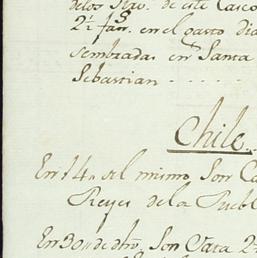 delos Rev. de este Casco
2½ fan.s en el gasto dia
sembradas en Santa
Sebastian - - - -
Chile
En 14 n del mismo Son Ca
Reyes de la Puebl
En 30 n de dho. Son Cata 2½